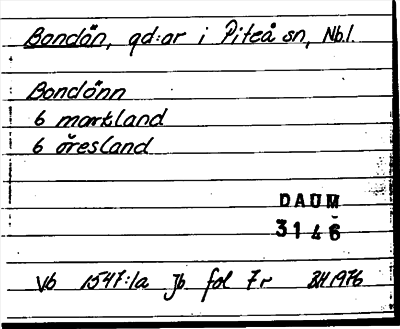 Bondön, gd:ar i Piteå sn, Nb.l.
Bondönn
6 markland
6 öresland
DAUM
3146
Vb 1547:1a Jb fol 7r BH 1976